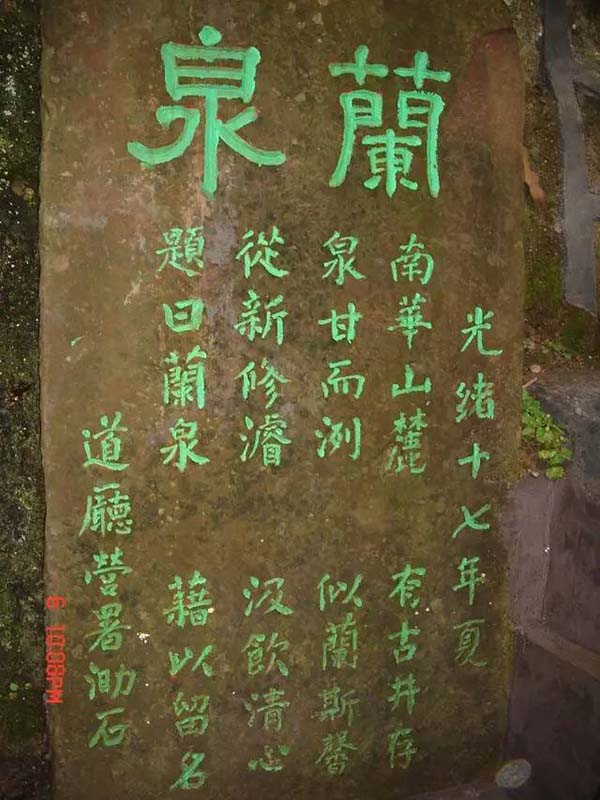 蘭泉
光緒十七年夏
南華山麓 有古井存
泉甘而洌 似蘭斯馨
從新修濬 汲飲清心
題曰蘭泉 藉以留名
道廳營署泐石